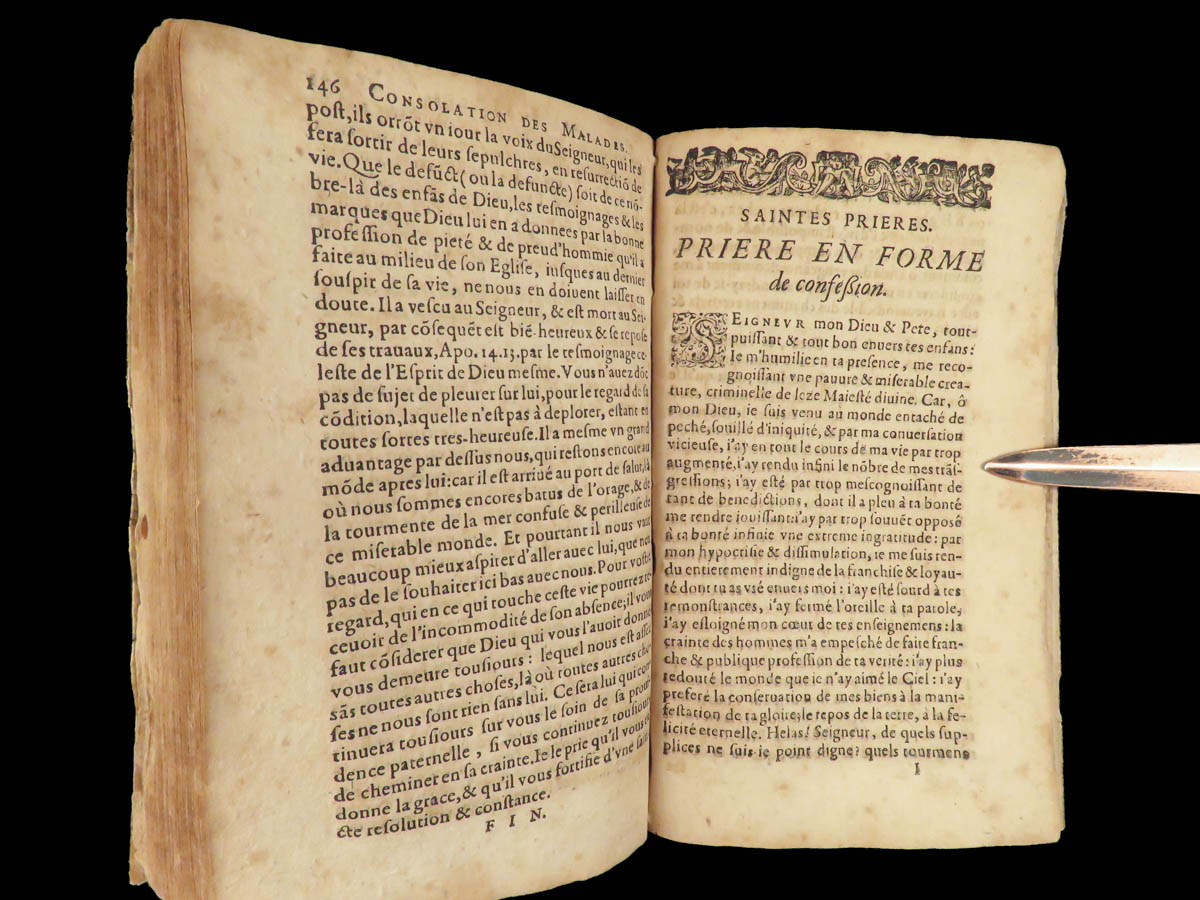 146 CONSOLATION DES MALADES.
poſt,ils orrõt vn iour la voix du Seigneur, qui les
fera ſortir de leurs ſepulchres, en reſurrectiõ de
vie. Que le defũct ( ou la defuncte) ſoit de ce nõ-
bre-là des enfãs de Dieu, les teſmoignages & les
marques que Dieu lui en a donnees par la bonne
profeſſion de pieté & de preud'hommie qu'il a
faite au milieu de ſon Egliſe, iuſques au dernier
ſouſpir de ſa vie, ne nous en doiuent laiſſer en
doute. Il a veſcu au Seigneur, & eſt mort au Sei-
gneur, par cõſequẽt eſt biẽ-heureux & ſe repoſe
de ſes trauaux, Apo. 14.13. par le teſmoignage ce-
leſte de l'Eſprit de Dieu meſme. Vous n'auez dõc
pas de ſujet de pleurer ſur lui, pour le regard de ſa
cõdition, laquelle n'eſt pas à deplorer, eſtant en
toutes ſortes tres-heureuſe. Il a meſme vn grand
aduantage par deſſus nous, qui reſtons encore au
mõde apres lui: car il eſt arriué au port de ſalut, là
où nous ſommes encores batus de l'orage, & de
la tourmente de la mer confuſe & perilleuſe de
ce miſerable monde. Et pourtant il nous vaut
beaucoup mieux aſpirer d'aller auec lui, que non
pas de le ſouhaiter ici bas auec nous. Pour voſtre
regard, qui en ce qui touche ceſte vie pourrez re-
ceuoir de l'incommodité de ſon abſence; il vous
faut cõſiderer que Dieu qui vous l'auoit donné
vous demeure touſiours : lequel nous eſt aſſez
sãs toutes autres choſes, là où toutes autres cho-
ſes ne nous ſont rien ſans lui. Ce ſera lui qui con-
tinuera touſiours ſur vous le ſoin de ſa proui-
dence paternelle , ſi vous continuez touſiours
de cheminer en ſa crainte. Ie le prie qu'il vous en
donne la grace, & qu'il vous fortifie d'vne ſain-
cte reſolution & conſtance.
F I N.
SAINTES PRIERES.
PRIERE EN FORME
de confeßion.
SEIGNEVR mon Dieu & Pere, tout-
puiſſant & tout bon enuers tes enfans:
Ie m'humilie en ta preſence, me reco-
gnoiſſant vne pauure & miſerable crea-
ture, criminelle de leze Maieſté diuine. Car, ô
mon Dieu, ie ſuis venu au monde entaché de
peché, ſouillé d'iniquité, & par ma conuerſation
vicieuſe, i'ay en tout le cours de ma vie par trop
augmenté, i'ay rendu infini le nõbre de mes trãſ-
greſſions; i'ay eſté par trop meſcognoiſſant de
tant de benedictions, dont il a pleu à ta bonté
me rendre iouiſſant: i'ay par trop ſouuẽt oppoſé
à ta bonté infinie vne extreme ingratitude : par
mon hypocriſie & diſſimulation, ie me ſuis ren-
du entierement indigne de la franchiſe & loyau-
té dont tu as vſé enuers moi : i'ay eſté ſourd à tes
remonſtrances, i'ay fermé l'oreille à ta parole,
i'ay eſloigné mon cœur de tes enſeignemens : la
crainte des hommes m'a empeſché de faire fran-
che & publique profeſſion de ta verité : i'ay plus
redouté le monde que ie n'ay aimé le Ciel : i'ay
preferé la conſeruation de mes biens à la mani-
feſtation de ta gloire, le repos de la terre, à la fe-
licité eternelle. Helas! Seigneur, de quels ſup-
plices ne ſuis-ie point digne? quels tourmens
I